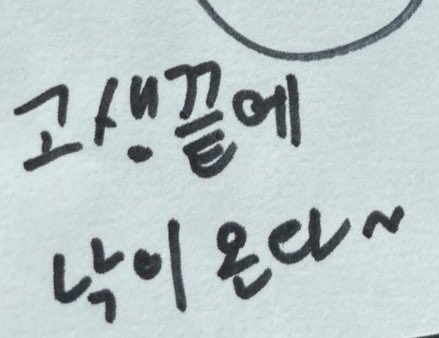 고생끝에
낙이 온다~